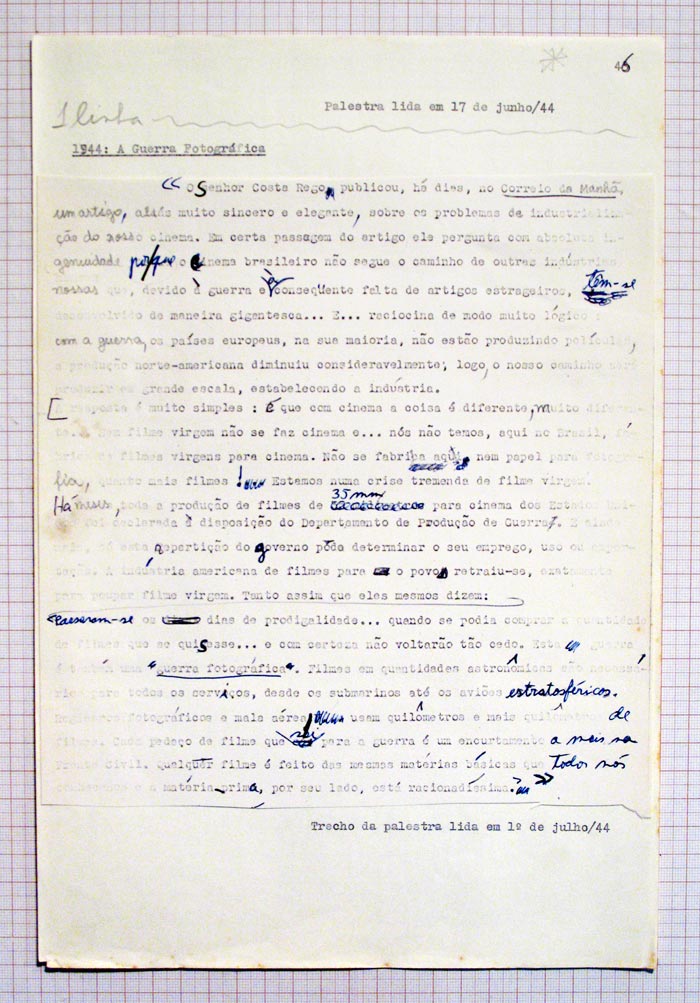 46
Palestra lida em 17 de junho/44
1 linha
1944: A Guerra Fotográfica
« O Senhor Costa Rego, publicou, há dias, no Correio da Manhã,
um artigo, aliás muito sincero e elegante, sobre os problemas de industrializa-
ção do nosso cinema. Em certa passagem do artigo ele pergunta com absoluta in-
genuidade por que o cinema brasileiro não segue o caminho de outras indústrias
nossas que, devido à guerra e à conseqüente falta de artigos estrageiros, têm-se
desenvolvido de maneira gigantesca... E... raciocina de modo muito lógico:
com a guerra, os países europeus, na sua maioria, não estão produzindo películas,
a produção norte-americana diminuiu consideravelmente; logo, o nosso caminho será
produzir em grande escala, estabelecendo a indústria.
[ A resposta é muito simples : É que com cinema a coisa é diferente, muito diferen-
te... Sem filme virgem não se faz cinema e... nós não temos, aqui no Brasil, fá-
brica de filmes virgens para cinema. Não se fabrica aqui nem papel para fotogra-
fia, quanto mais filmes! Estamos numa crise tremenda de filme virgem.
Há meses, toda a produção de filmes de 35 mm para cinema dos Estados Uni-
dos foi declarada à disposição do Departamento de Produção de Guerra. E ainda
mais, só esta repartição do governo pode determinar o seu emprego, uso ou expor-
tação. A indústria americana de filmes para o povo retraiu-se, exatamente
para poupar filme virgem. Tanto assim que eles mesmos dizem:
os dias de prodigalidade... quando se podia comprar a quantidade
de filmes que se quisesse... e com certeza não voltarão tão cedo. Esta guerra
é também uma "guerra fotográfica". Filmes em quantidades astronômicas são necessá-
rios para todos os serviços, desde os submarinos até os aviões estratosféricos.
Registros fotográficos e mala aérea usam quilômetros e mais quilômetros de
filmes. Cada pedaço de filme que sai para a guerra é um encurtamento a mais na
Frente Civil. Qualquer filme é feito das mesmas matérias básicas que todos nós
conhecemos e a matéria-prima, por seu lado, está racionadíssima. »
Trecho da palestra lida em 1º de julho/44